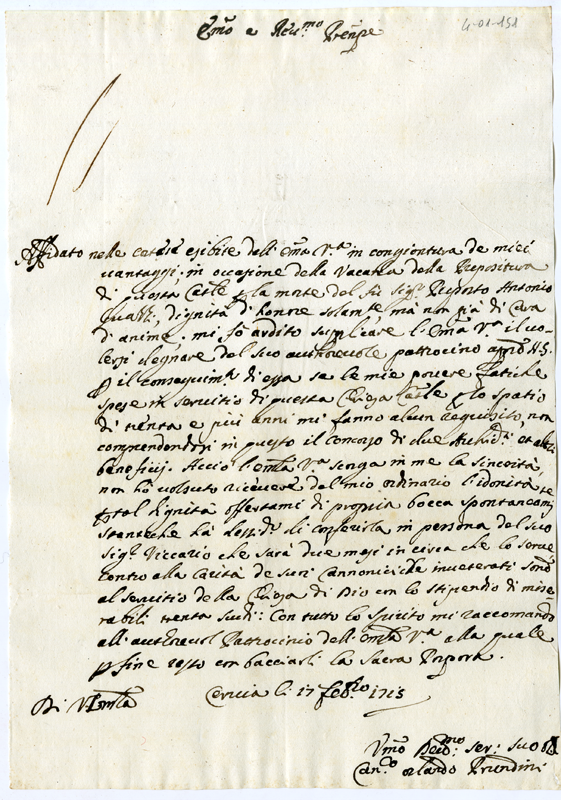 4-01-151
Emo e Reu.mo Prenpe
Affidato nelle esibite dall'Emza Vra in congiontura de miei
uantaggi, in occazione della Vacanza della Prepositura
di questa Catle p la morte del fù Sigr Preposto Antonio
dignità di honore solante mà non già di Cura
di anime, mi fò ardito suplicare l'Emza Vra il uo-
lersi degnare del suo authoreuole patrocino
p il conseguimto di essa se le mie pouere fatiche
spese in seruitio di questa Chieza Catle p lo spatio
di trenta e più anni mi fanno alcun acquisto, non
comprendendosi in questo il Concorso di due et altri
beneficij. Acciò l'Emza Vra senga in me la sincerità,
non hò uolsuto riceuere dal mio ordinario l'idonità
p tal dignità offertami di propria bocca spontaneamte
stanteche hà di conferirla in persona del suo
Sigr Viccario che sarà due mesi in circa che lo serue
contro alla carità de suoi Cannonici che inueterati sono
al seruitio della Chieza di Dio con lo stipendio di mise
rabili trenta scudi: Con tutto lo spirito mi raccomando
all'authoreuol Patrocinio dell'Emza Vra alla quale
p fine resto con bacciarli la Sacra Porpora.
Di V. Emza Ceruia li 17 Febro 1713
Vmo Deumo: Ser: Suo
Cano: Orlando Prundini